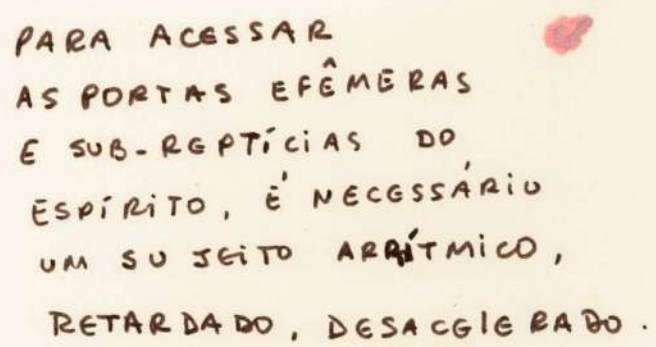 PARA ACESSAR
AS PORTAS EFÊMERAS
E SUB-REPTÍCIAS DO
ESPÍRITO, É NECESSÁRIO
UM SUJEITO ARRÍTMICO,
RETARDADO, DESACELERADO.